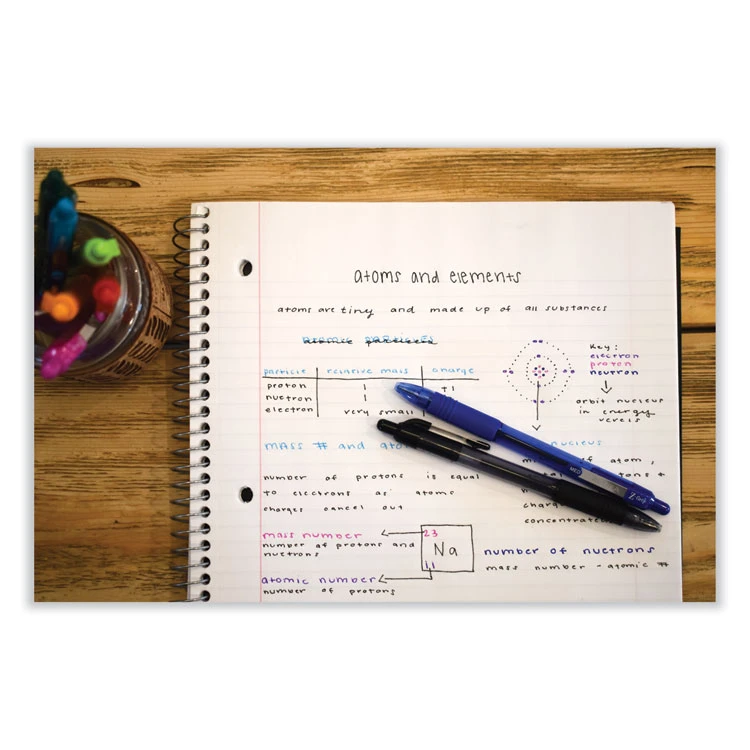 atoms and elements
atoms are tiny and made up of all substances
atomic particles
particle relative mass charge
proton 1 +1
nuetron 1
electron very small
Key:
electron
proton
neutron
orbit nucleus
in energy
mass # and
nucleus
of atom,
number of protons is equal
to electrons as atoms
charges cancel out
concentrated
mass number
number of protons and
nuetrons
23
Na
11
atomic number
number of protons
number of nuetrons
mass number - atomic #
MED